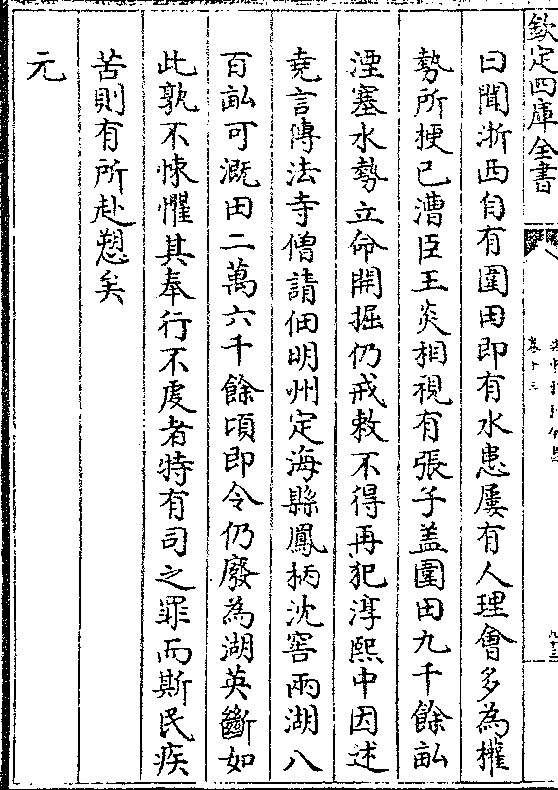 欽定四庫全書
曰聞浙西自有圍田即有水患屢有人理會多為權
勢所梗已漕臣王炎相視有張子盖圍田九千餘畝
湮塞水勢立命開掘仍戒敕不得再犯淳熙中因述
堯言傳法寺僧請佃明州定海縣鳳柄沈窖兩湖八
百畝可溉田二萬六千餘頃即令仍廢為湖英斷如
此孰不悚懼其奉行不䖍者特有司之罪而斯民疾
苦則有所赴愬矣
元